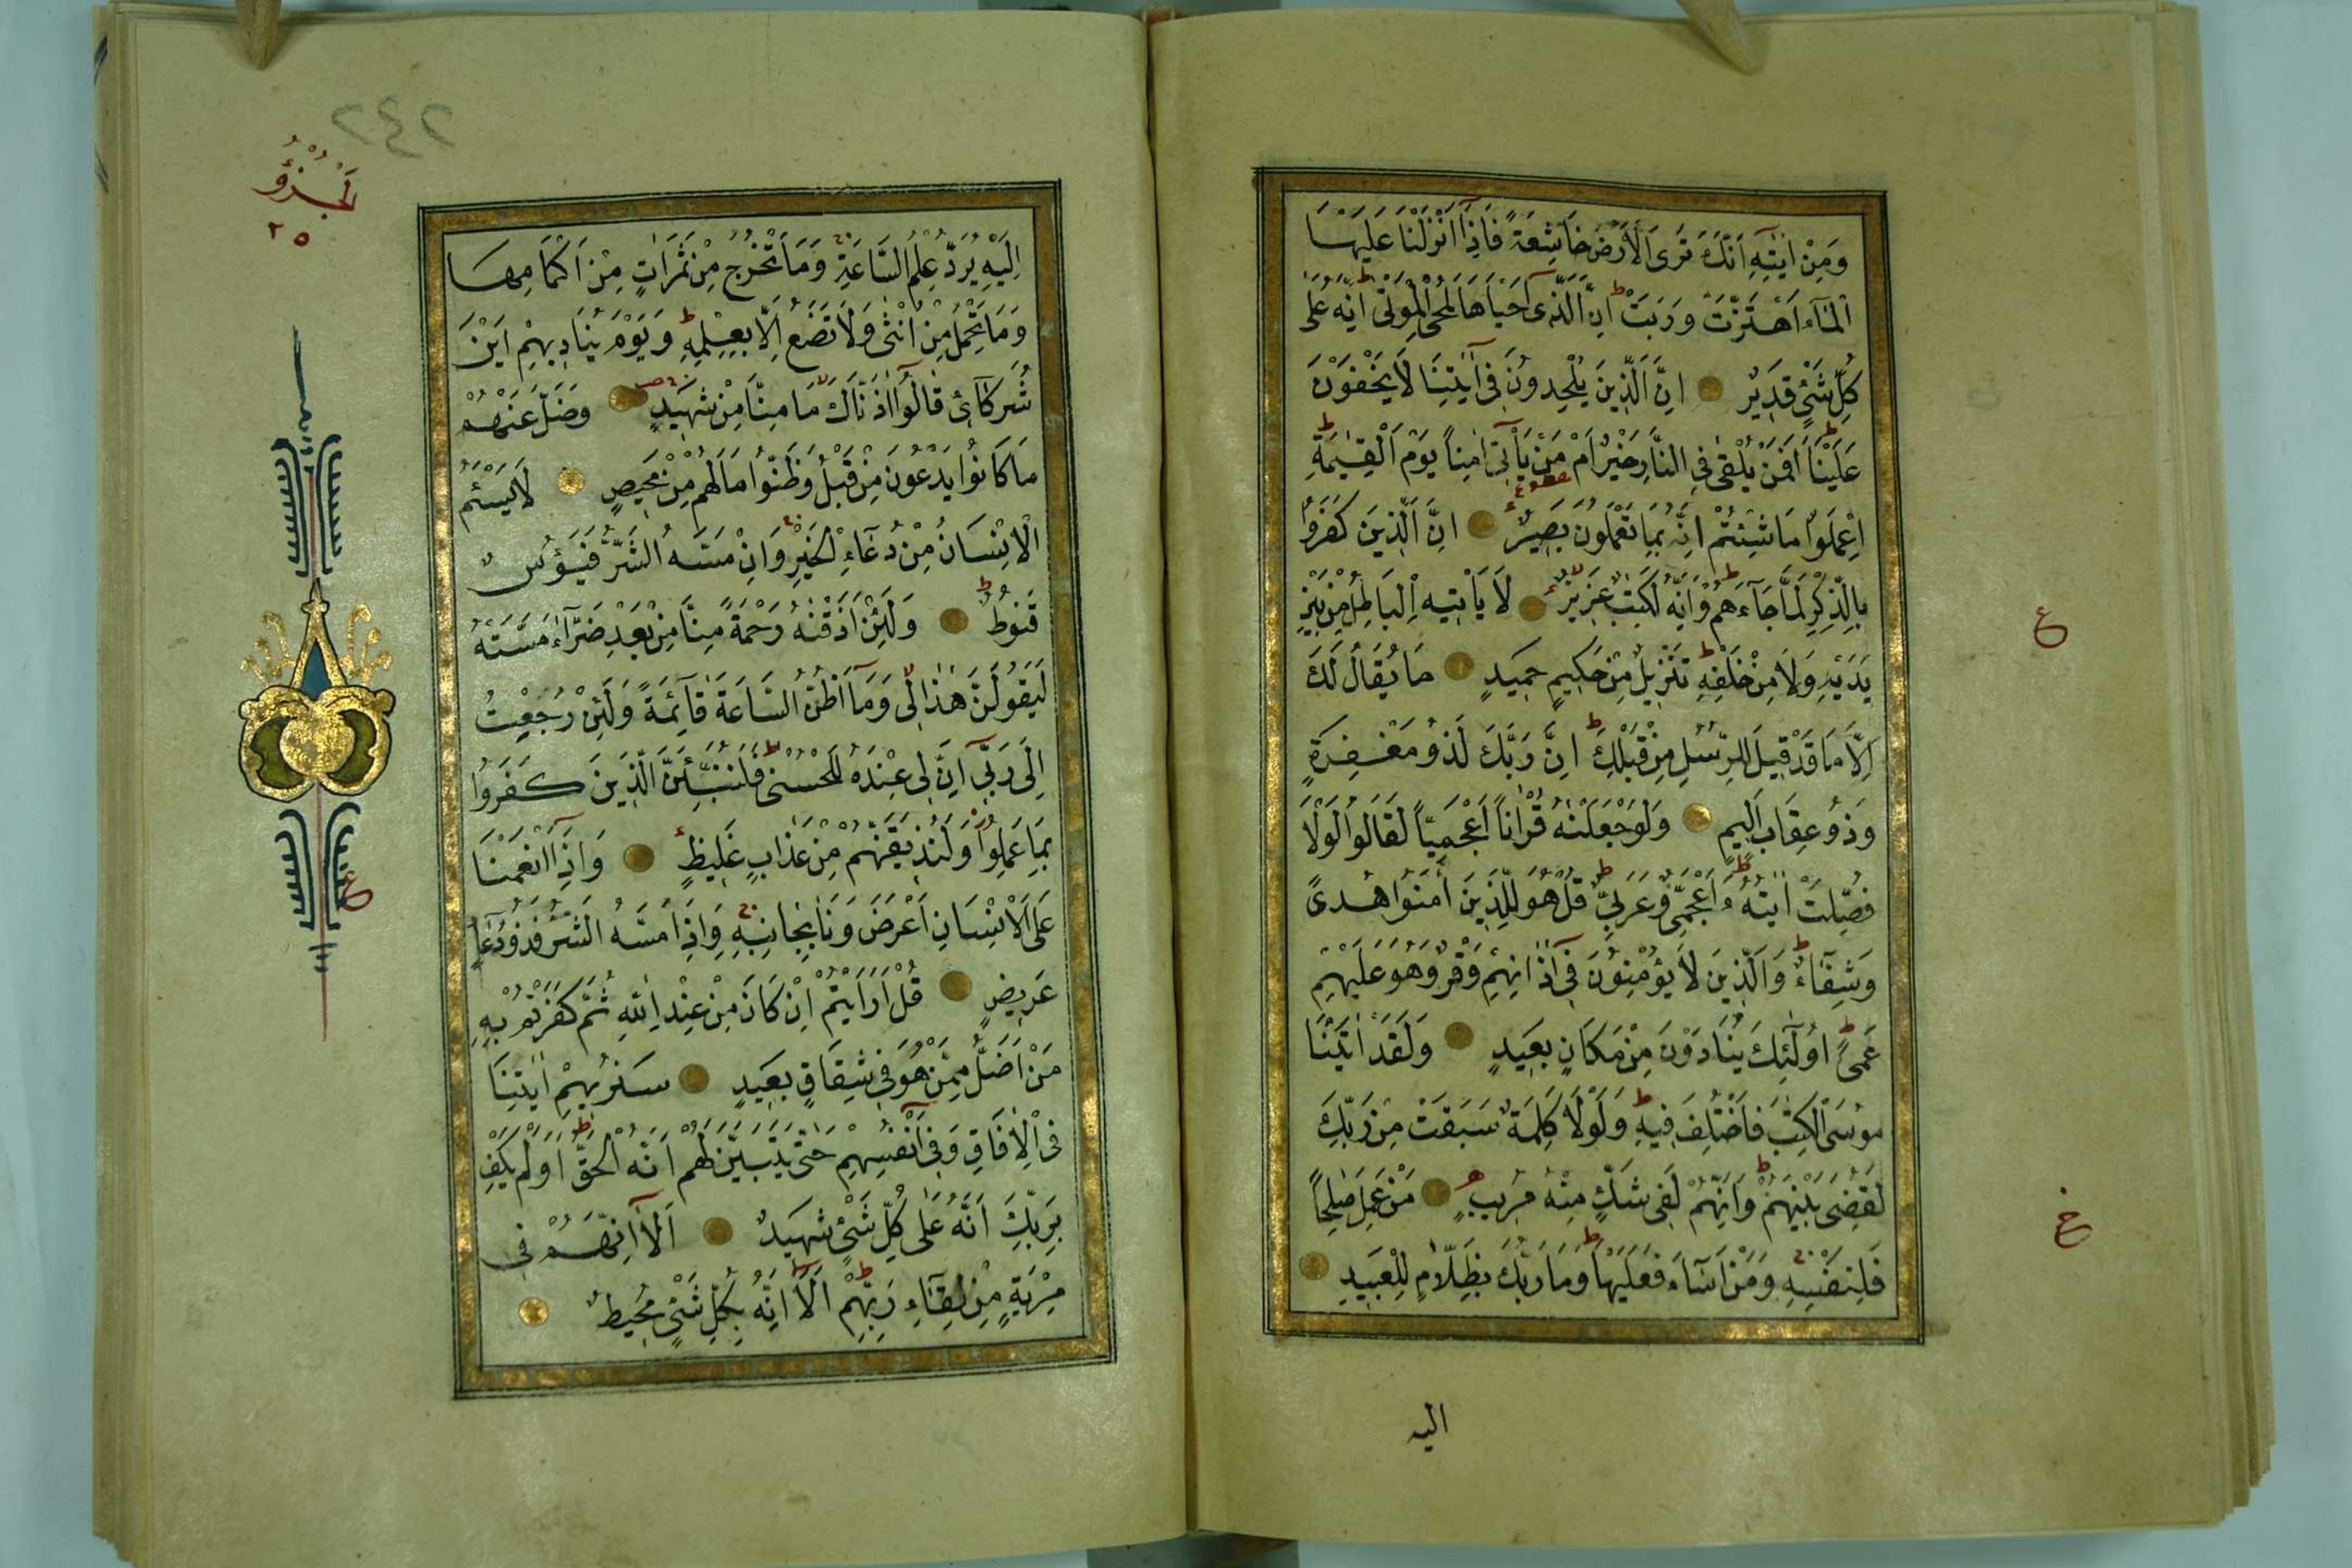 وَمِنْ اٰيٰتِهٖ اَنَّكَ تَرَى الْاَرْضَ خَاشِعَةً فَاِذَا اَنْزَلْنَا عَلَيْهَا
الْمَآءَ اهْتَزَّتْ وَرَبَتْ ط اِنَّ الَّذٖى اَحْيَاهَا لَمُحْيِى الْمَوْتٰى ط اِنَّهُ عَلٰى
كُلِّ شَئٍ قَدٖيرٌ اِنَّ الَّذٖينَ يُلْحِدُونَ فٖى اٰيٰتِنَا لَا يَخْفَوْنَ
عَلَيْنَا ط اَفَمَنْ يُلْقٰى فِى النَّارِ خَيْرٌ اَمْ مَنْ يَأْتٖى اٰمِنًا يَوْمَ الْقِيٰمَةِ ط
اِعْمَلُوا مَا شِئْتُمْ اِنَّهُ بِمَا تَعْمَلُونَ بَصٖيرٌ اِنَّ الَّذٖينَ كَفَرُوا
بِالذِّكْرِ لَمَّا جَآءَهُمْ ط وَاِنَّهُ لَكِتٰبٌ عَزٖيزٌ لَا يَأْتٖيهِ الْبَاطِلُ مِنْ بَيْنِ
يَدَيْهِ وَلَا مِنْ خَلْفِهٖ ط تَنْزٖيلٌ مِنْ حَكٖيمٍ حَمٖيدٍ مَا يُقَالُ لَكَ
اِلَّا مَا قَدْ قٖيلَ لِلرُّسُلِ مِنْ قَبْلِكَ ط اِنَّ رَبَّكَ لَذُو مَغْفِرَةٍ
وَذُو عِقَابٍ اَلٖيمٍ وَلَوْ جَعَلْنٰهُ قُرْاٰنًا اَعْجَمِيًّا لَقَالُوا لَوْلَا
فُصِّلَتْ اٰيٰتُهُ ط ءَاَعْجَمِىٌّ وَعَرَبِىٌّ ط قُلْ هُوَ لِلَّذٖينَ اٰمَنُوا هُدًى
وَشِفَآءٌ ط وَالَّذٖينَ لَا يُؤْمِنُونَ فٖى اٰذَانِهِمْ وَقْرٌ وَهُوَ عَلَيْهِمْ
عَمًى ط اُولٰٓئِكَ يُنَادَوْنَ مِنْ مَكَانٍ بَعٖيدٍ وَلَقَدْ اٰتَيْنَا
مُوسَى الْكِتٰبَ فَاخْتُلِفَ فٖيهِ ط وَلَوْلَا كَلِمَةٌ سَبَقَتْ مِنْ رَبِّكَ
لَقُضِىَ بَيْنَهُمْ ط وَاِنَّهُمْ لَفٖى شَكٍّ مِنْهُ مُرٖيبٍ مَنْ عَمِلَ صَالِحًا
فَلِنَفْسِهٖ ج وَمَنْ اَسَآءَ فَعَلَيْهَا ط وَمَا رَبُّكَ بِظَلَّامٍ لِلْعَبٖيدِ
اليه
ع
ع
٢٤٢
الْجُزْؤُ
٢٥
اِلَيْهِ يُرَدُّ عِلْمُ السَّاعَةِ ج وَمَا تَخْرُجُ مِنْ ثَمَرَاتٍ مِنْ اَكْمَامِهَا
وَمَا تَحْمِلُ مِنْ اُنْثٰى وَلَا تَضَعُ اِلَّا بِعِلْمِهٖ ط وَيَوْمَ يُنَادٖيهِمْ اَيْنَ
شُرَكَآئٖ قَالُوا اٰذَنَّاكَ مَا مِنَّا مِنْ شَهٖيدٍ وَضَلَّ عَنْهُمْ
مَا كَانُوا يَدْعُونَ مِنْ قَبْلُ وَظَنُّوا مَا لَهُمْ مِنْ مَحٖيصٍ لَا يَسْئَمُ
الْاِنْسَانُ مِنْ دُعَآءِ الْخَيْرِ ج وَاِنْ مَسَّهُ الشَّرُّ فَيَؤُسٌ
قَنُوطٌ ط وَلَئِنْ اَذَقْنٰهُ رَحْمَةً مِنَّا مِنْ بَعْدِ ضَرَّآءَ مَسَّتْهُ
لَيَقُولَنَّ هٰذَا لٖى وَمَآ اَظُنُّ السَّاعَةَ قَآئِمَةً وَلَئِنْ رُجِعْتُ
اِلٰى رَبّٖى اِنَّ لٖى عِنْدَهُ لَلْحُسْنٰى ط فَلَنُنَبِّئَنَّ الَّذٖينَ كَفَرُوا
بِمَا عَمِلُوا وَلَنُذٖيقَنَّهُمْ مِنْ عَذَابٍ غَلٖيظٍ وَاِذَا اَنْعَمْنَا
عَلَى الْاِنْسَانِ اَعْرَضَ وَنَاٰ بِجَانِبِهٖ ج وَاِذَا مَسَّهُ الشَّرُّ فَذُو دُعَآءٍ
عَرٖيضٍ قُلْ اَرَاَيْتُمْ اِنْ كَانَ مِنْ عِنْدِ اللّٰهِ ثُمَّ كَفَرْتُمْ بِهٖ
مَنْ اَضَلُّ مِمَّنْ هُوَ فٖى شِقَاقٍ بَعٖيدٍ سَنُرٖيهِمْ اٰيٰتِنَا
فِى الْاٰفَاقِ وَفٖى اَنْفُسِهِمْ حَتّٰى يَتَبَيَّنَ لَهُمْ اَنَّهُ الْحَقُّ ط اَوَلَمْ يَكْفِ
بِرَبِّكَ اَنَّهُ عَلٰى كُلِّ شَئٍ شَهٖيدٌ اَلَا اِنَّهُمْ فٖى
مِرْيَةٍ مِنْ لِقَآءِ رَبِّهِمْ ط اَلَا اِنَّهُ بِكُلِّ شَئٍ مُحٖيطٌ